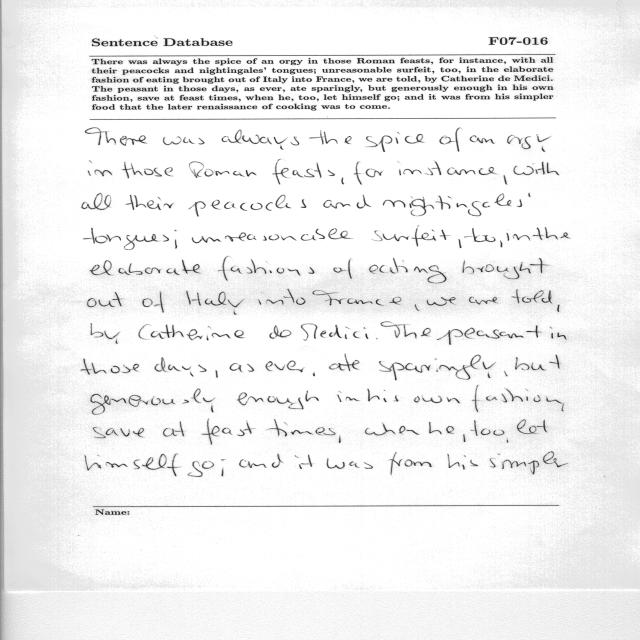 Sentence Database F07-016
There was always the spice of an orgy in those Roman feasts, for instance, with all
their peacocks and nightingales' tongues; unreasonable surfeit, too, in the elaborate
fashion of eating brought out of Italy into France, we are told, by Catherine de Medici.
The peasant in those days, as ever, ate sparingly, but generously enough in his own
fashion, save at feast times, when he, too, let himself go; and it was from his simpler
food that the later renaissance of cooking was to come.
There was always the spice of an orgy
in those Roman feasts, for instance, with
all their peacocks and nightingales'
tongues; unreasonable surfeit, too, in the
elaborate fashions of eating brought
out of Italy into France, we are told,
by Catherine de Medici. The peasant in
those days, as ever, ate sparingly, but
generously enough in his own fashion,
save at feast times, when he, too, let
himself go; and it was from his simpler
Name: